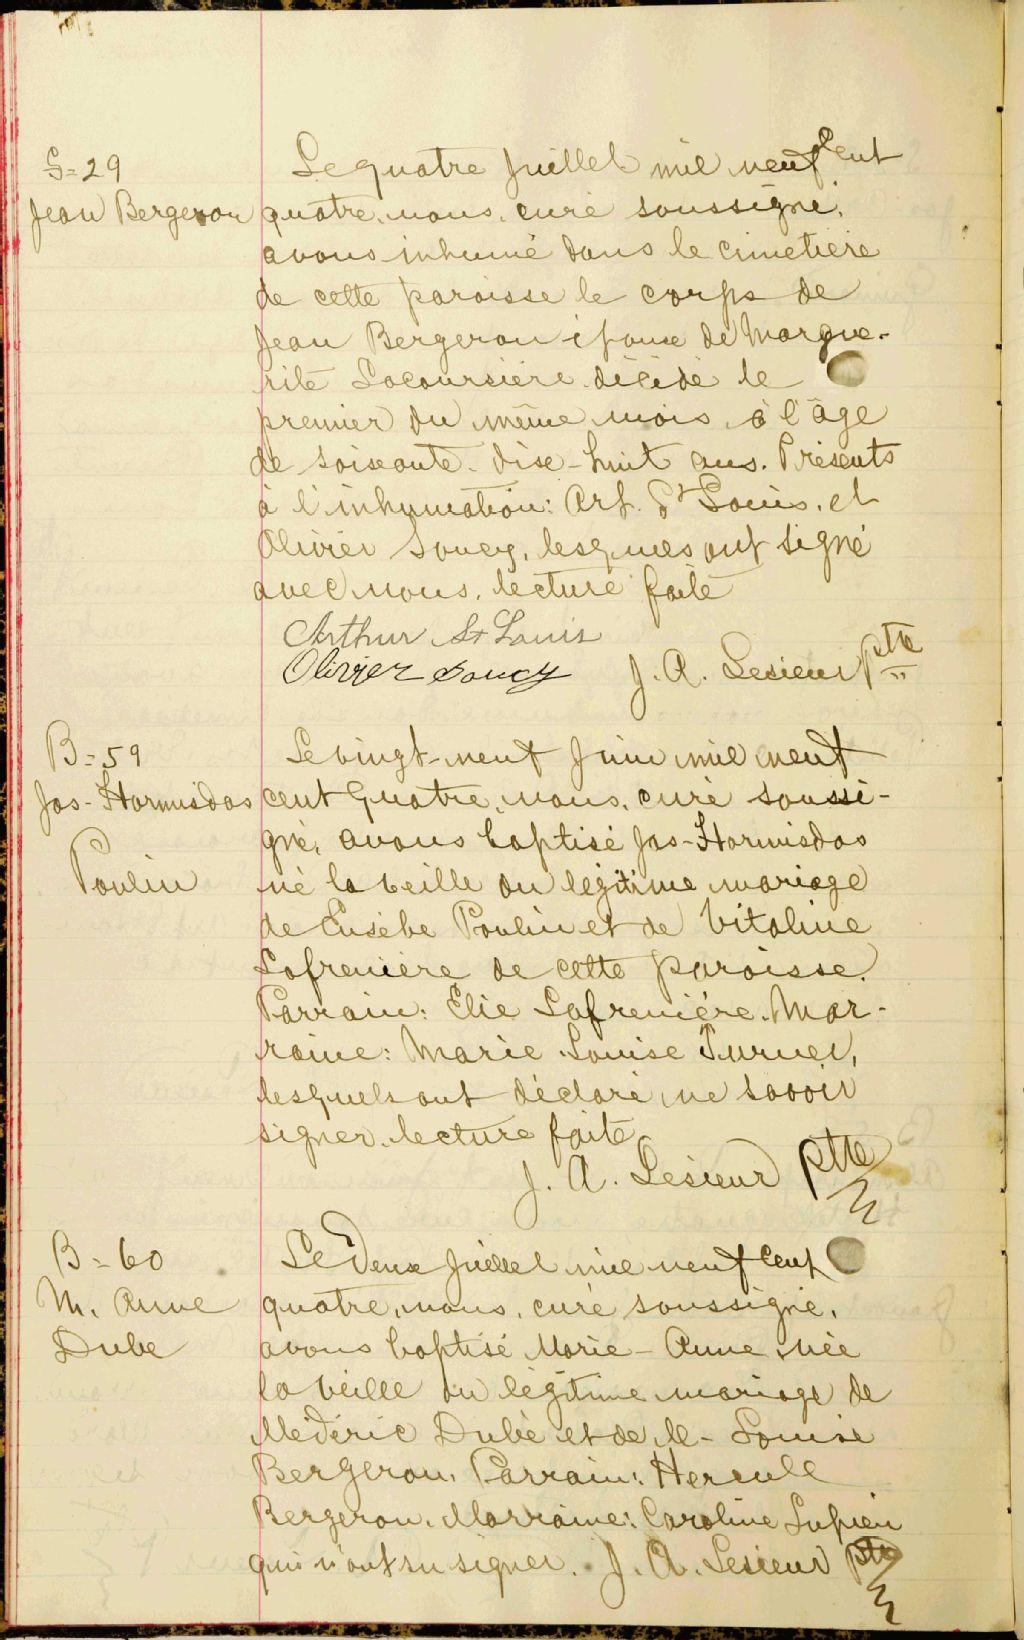 S=29
Jean Bergeron
Le quatre Juillet mil neuf cent
quatre, nous, curé soussigné,
avons inhumé dans le cimetière
de cette paroisse le corps de
Jean Bergeron époux de Margue-
rite Lacoursière décédé le
premier du même mois, à l'âge
de soixante-dix-huit ans. Présents
à l'inhumation: Art. St Louis, et
Olivier Soucy, lesquels ont signé
avec nous, lecture faite
Arthur St Louis
Olivier Soucy J. A. Lesieur Ptre
B=59
Jos-Hormisdas
Poulin
Le vingt-neuf Juin mil neuf
cent quatre, nous, curé soussi-
gné, avons baptisé Jos-Hormisdas
né la veille du légitime mariage
de Eusèbe Poulin et de Vitaline
Lafrenière de cette paroisse.
Parrain: Élie Lafrenière. Mar-
raine: Marie Louise Turner,
lesquels ont déclaré ne savoir
signer. lecture faite
J. A. Lesieur Ptre
B=60
M. Anne
Dubé
Le Deux Juillet mil neuf cent
quatre, nous, curé soussigné,
avons baptisé Marie-Anne, née
la veille du légitime mariage de
Médéric Dubé et de M-Louise
Bergeron. Parrain: Hercule
Bergeron. Marraine: Caroline Lupien
qui n'ont su signer. J. A. Lesieur Ptre